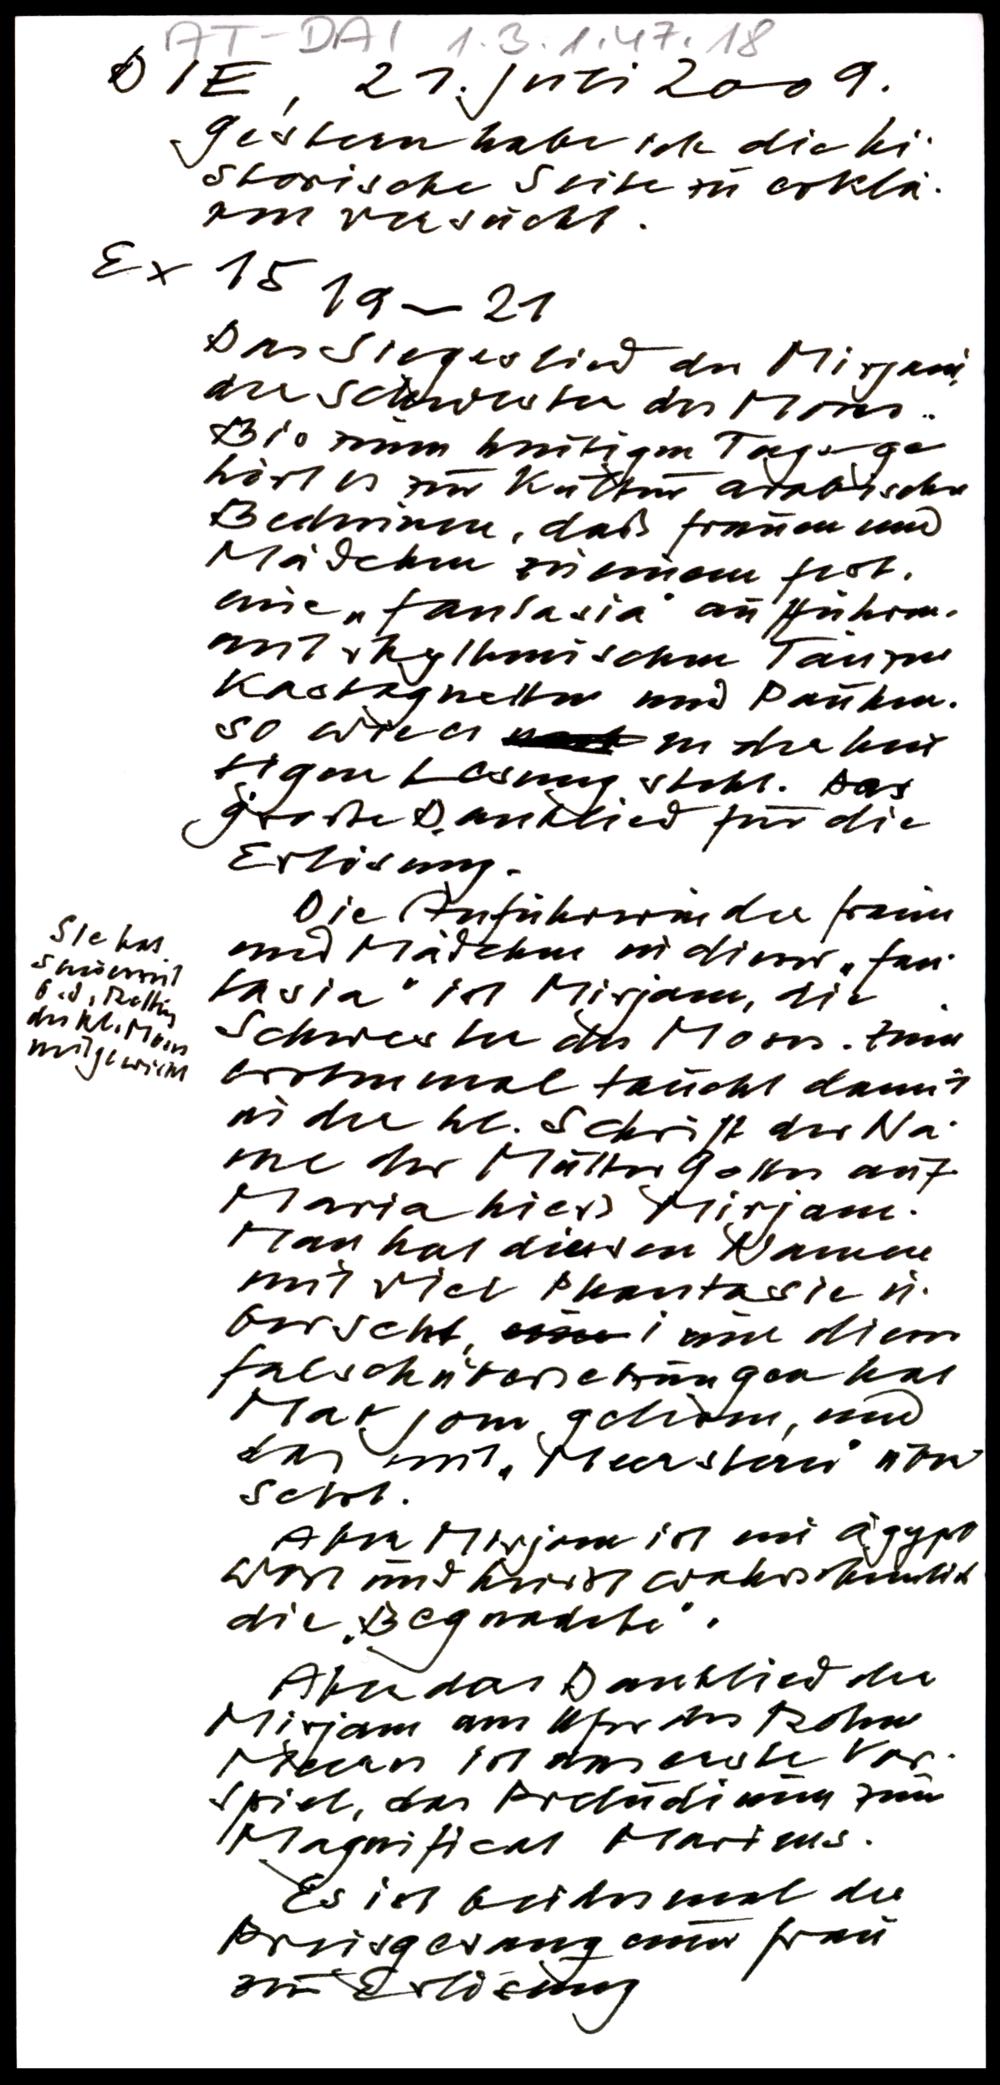 AT-DAI 1.3.1.47.18
DIE, 21. Juli 2009.
Gestern habe ich die hi-
storische Seite zu erklä-
ren versucht.
Ex 15 19–21
Das Siegeslied der Mirjam,
der Schwester des Moses.
Bis zum heutigen Tag ge
hört es zur Kultur arabischer
Beduinen, daß Frauen und
Mädchen zu einem Fest
eine „Fantasia" aufführen.
mit rhythmischen Tänzen
Kastagnetten und Pauken.
so wie es in der heu
tigen Lesung steht. Das
große Danklied für die
Erlösung.
Die Anführerin der Frauen
und Mädchen in dieser „Fan-
tasia" ist Mirjam, die
Schwester des Moses. Zum
erstenmal taucht damit
in der hl. Schrift der Na-
me der Mutter Gottes auf
Maria hiess Mirjam.
Man hat diesen Namen
mit viel Phantasie ü-
bersetzt, eine dieser
Falschübersetzungen hat
Mar jam gelesen, und
das mit „Meerstern" über
setzt.
Aber Mirjam ist ein ägypt
Wort und heisst wahrscheinlich
die „Begnadete".
Aber das Danklied der
Mirjam am Ufer des Roten
Meeres ist das erste Vor-
spiel, das Preludium zum
Magnificat Mariens.
Es ist beidesmal der
Preisgesang einer Frau
zur Erlösung
Sie hat
b.d. Rettung
des kl. Moses
mitgewirkt